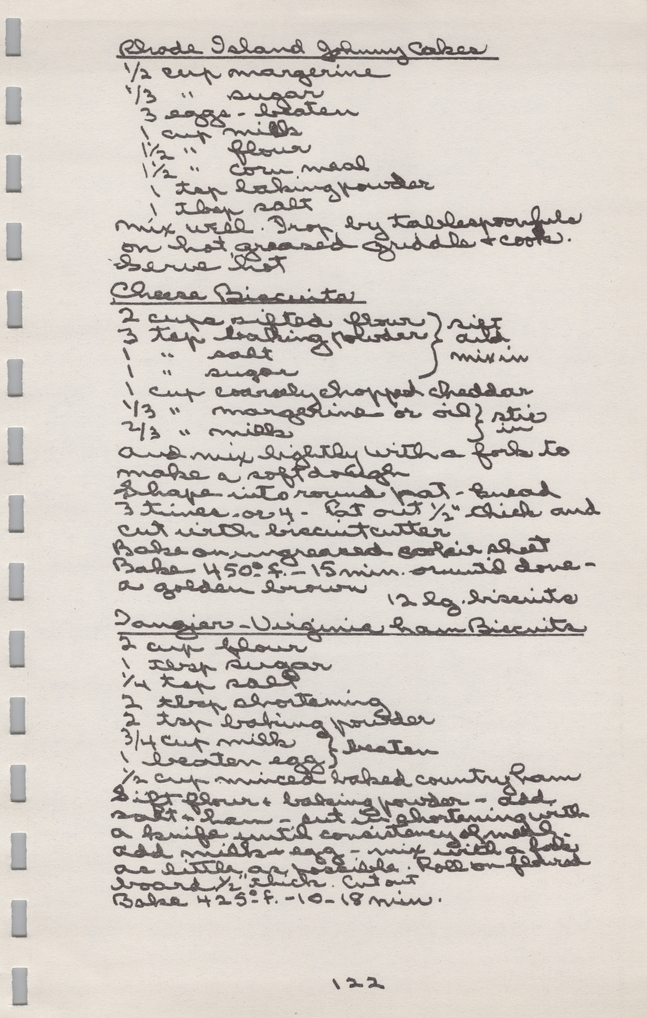 Rhode Island Johnny Cakes
1/2 cup margerine
1/3 " sugar
3 eggs - beaten
1 cup milk
1 1/2 " flour
1 1/2 " corn meal
1 tsp baking powder
1 tbsp salt
mix well. Drop by tablespoonfuls
on hot greased griddle + cook.
Serve hot
Cheese Biscuits
2 cups sifted flour } sift
3 tsp baking powder } and
1 " salt } mix in
1 " sugar
1 cup coarsely chopped cheddar
1/3 " margerine or oil } stir
2/3 " milk } in
and mix lightly with a fork to
make a soft dough
Shape into round pat - knead
3 times or 4 - Pat out 1/2" thick and
cut with biscuit cutter
Bake on ungreased cookie sheet
Bake 450° f. - 15 min. or until done -
a golden brown
12 lg. biscuits
Tangier - Virginia ham Biscuits
2 cup flour
1 tbsp sugar
1/4 tsp salt
2 tbsp shortening
2 tsp baking powder
3/4 cup milk } beaten
1 beaten egg }
1/2 cup minced baked country ham
Sift flour + baking powder - add
salt + ham - cut in shortening with
a knife until consistency of meal -
add milk + egg - mix with a fork
as little as possible. Roll on floured
board 1/2" thick. Cut out
Bake 425° f. - 10-18 min.
122